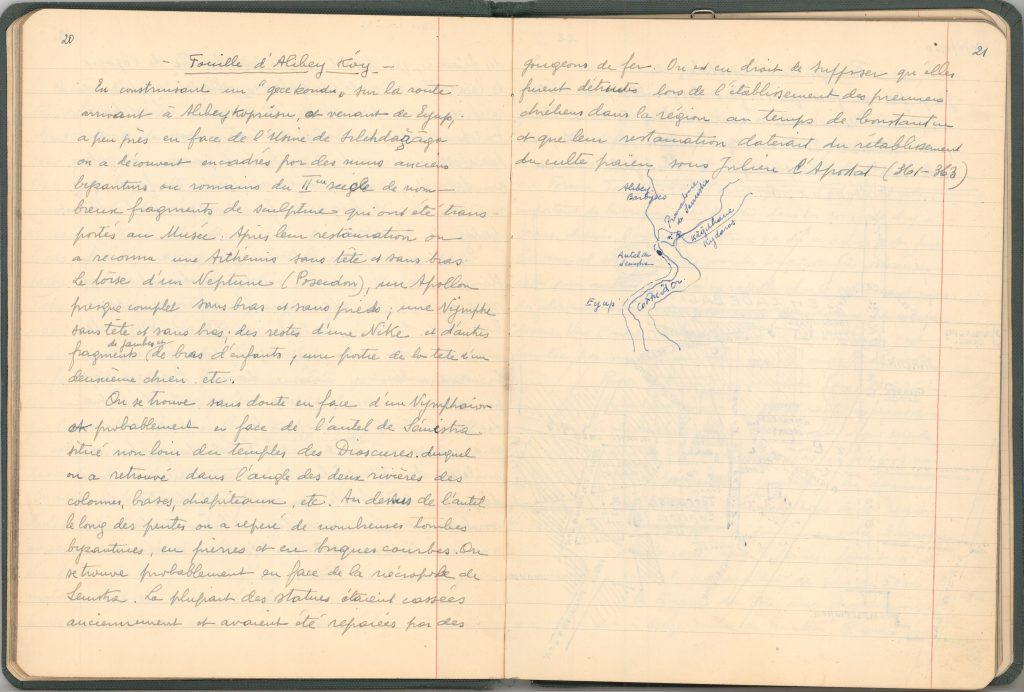 20
- Fouille d'Alibey Köy -
En construisant un "gecekondu" sur la route
arrivant à Alibeyköprüsu, et venant de Eyup,
a peu près en face de l'Usine de Silahdarağa
on a découvert encadrés par des murs anciens
byzantins ou romains du IIme siècle de nom-
breux fragments de sculpture qui ont été trans-
portés au Musée. Après leur restauration on
a reconnu une Arthémis sans tête et sans bras
Le torse d'un Neptune (Poseidon), un Apollon
presque complet sans bras et sans pieds; une Nymphe
sans tête et sans bras. des restes d'une Niké et d'autres
de jambes et
fragments (de bras d'enfants, une partie de la tete d'un
deuxième chien. etc.
On se trouve sans doute en face d'un Nymphaion
et probablement en face de l'autel de Sémistra
situé non loin du temples des Dioscures. duquel
on a retrouvé dans l'angle des deux rivières des
colonnes, bases, chapiteaux, etc. Au dessus de l'autel
le long des pentes on a repéré de nombreuses tombes
byzantines, en pierres et en briques courbes. On
se trouve probablement en face de la nécropole de
Semstra. La plupart des statues étaient cassées
anciennement et avaient été réparées par des
21
gougeons de fer. On est en droit de supposer qu'elles
furent détruites lors de l'établissement des premiers
chrétiens dans la région au temps de Constantin
et que leur restauration daterait du rétablissement
du culte païen sous Julien l'Apostat (361-363)
Alibey
Barbyses
Promontoire
de Semistra
Kağithane
Kydaros
Autel de
Semistra
Eyup
Corne d'Or